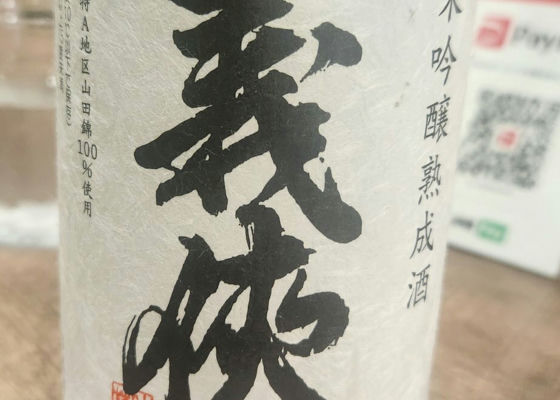 米吟醸熟成酒
義侠
特A地区山田錦100%使用
Pay